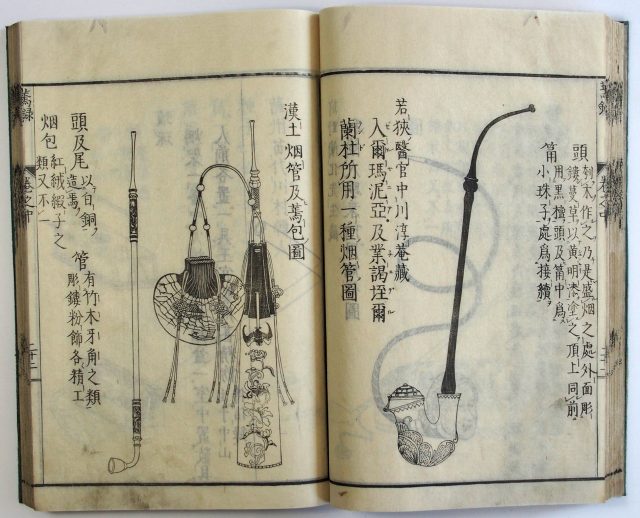 蔫錄
卷之中
頭 刻木作之乃是盛烟之處外面彫
鏤蔓草以黃明漆塗之頂上同前
筩 用黑檀頭及筩中爲
小珠子處爲接續
若狹醫官中川淳菴藏
入爾瑪泥亞及業謁垤爾
蘭杜所用一種烟管圖
漢土烟管及蔫包圖
管 有竹木牙角之類
彫鏤粉飾各精工
頭及尾 以白銅
造焉
烟包 紅絨緞子之
類又不一
蔫錄
卷之中
二十二